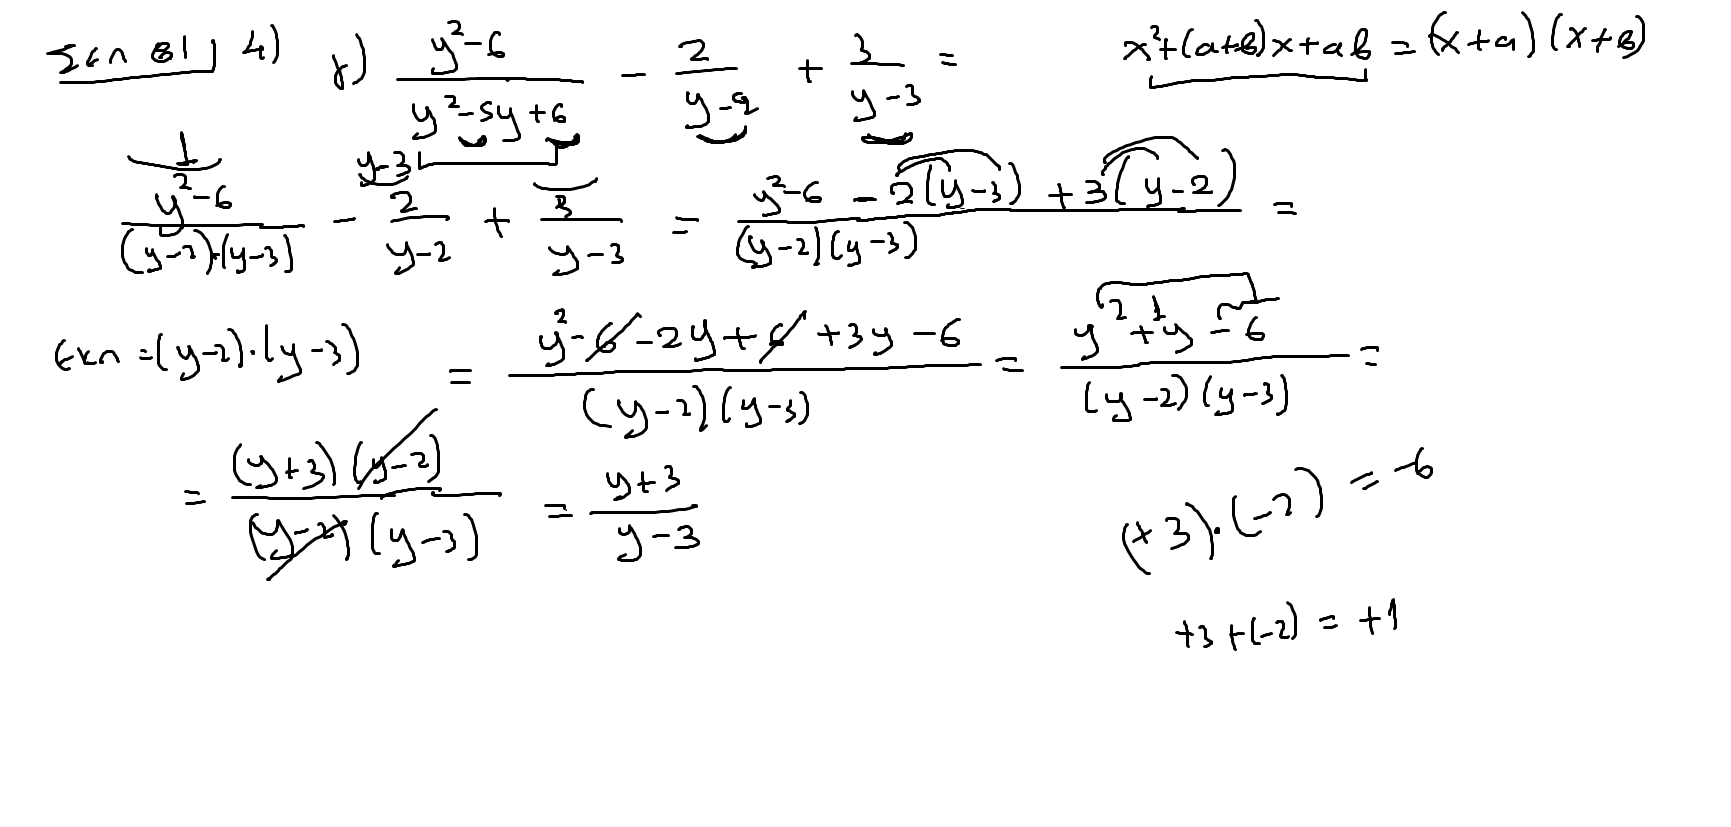 Σελ 81 4) γ) (y²-6)/(y²-5y+6) - 2/(y-2) + 3/(y-3) =
x²+(a+β)x+aβ = (x+a)(x+β)
1 y-3
(y²-6)/((y-2)·(y-3)) - 2/(y-2) + 3/(y-3) = (y²-6 - 2(y-3) + 3(y-2))/((y-2)(y-3)) =
Εκπ = (y-2)·(y-3)
= (y²-6-2y+6+3y-6)/((y-2)(y-3)) = (y²+1y-6)/((y-2)(y-3)) =
= ((y+3)(y-2))/((y-2)(y-3)) = (y+3)/(y-3)
(+3)·(-2) = -6
+3+(-2) = +1